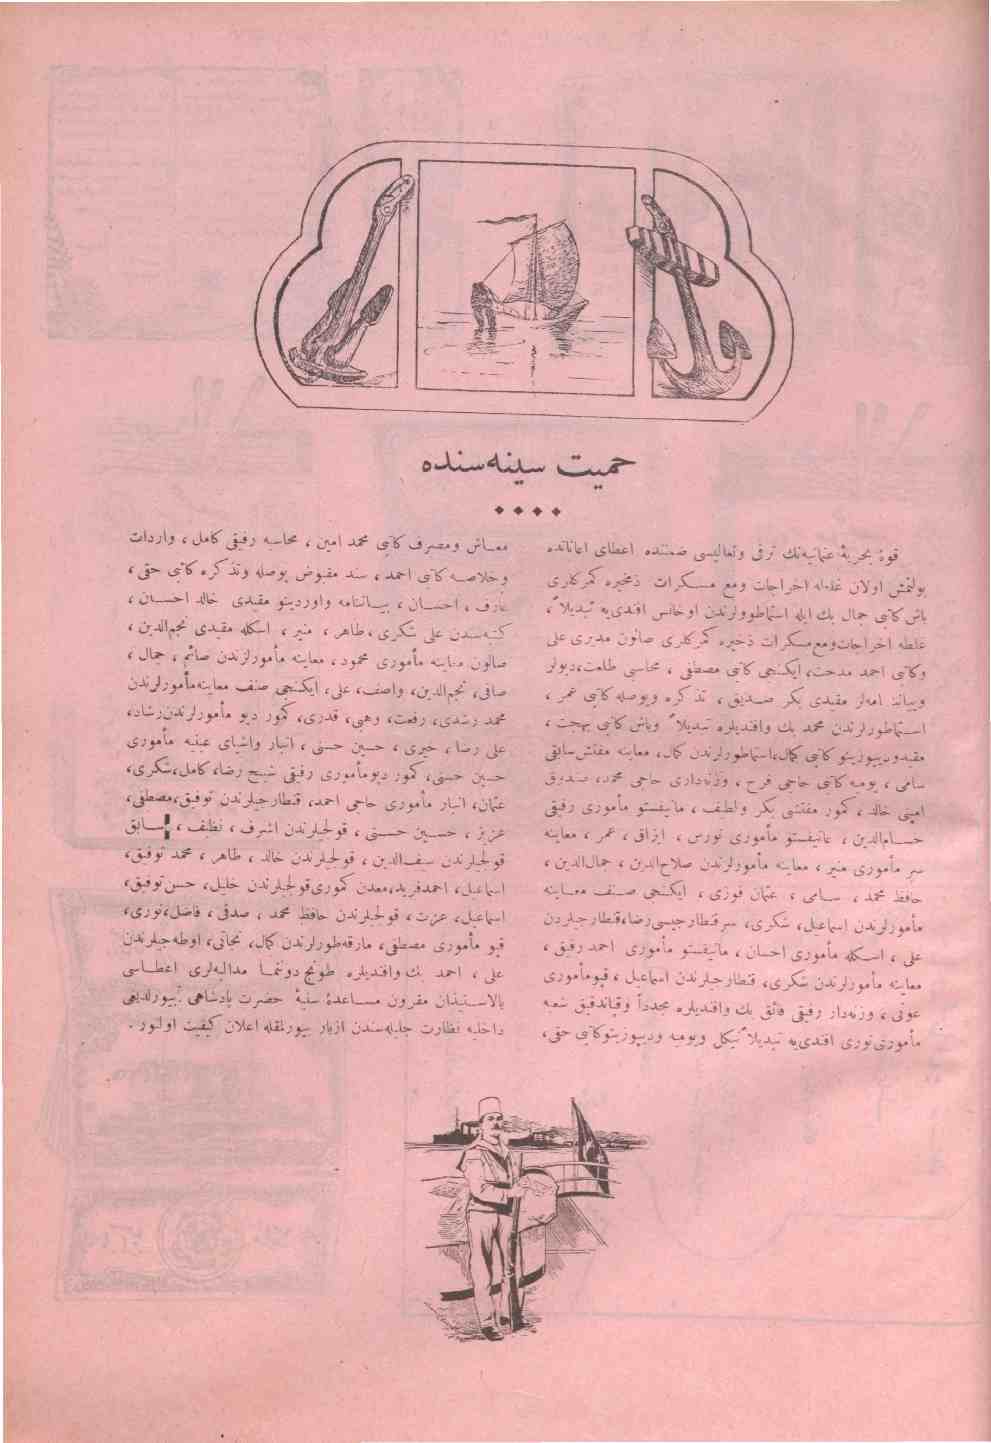 حمیت سینه‌سنده
قوۀ بحریۀ عثمانیه‌نك ترقی وتعالیسی ضمننده اعطای اعاناتده
بولنمش اولان غلطه اخراجات ومع مسكرات ذخیره كمركلری
باش كاتبی جمال بك ایله استماطورلرندن اوخانس افندی‌یه تبدیلاً،
غلطه اخراجات‌ومع‌مسكرات ذخیره كمركلری صالون مدیری علی
وكاتبی احمد مدحت، ایكنجی كاتبی مصطفی ، محاسبی طلعت،دپولر
وبیاننامه‌لر مقیدی بكر صدیق ، تذكره وپوصله كاتبی عمر ،
استماطورلرندن محمد بك وافندیلره تبدیلاً وباش كاتبی بهجت ،
مقید‌ودیپوزیتو كاتبی كمال،استماطورلرندن كمال، معاینه مفتش سابقی
سامی ، یومیه كاتبی حاجی فرح ، وزنه‌داری حاجی محمد، صندوق
امینی خالد ، كمور مفتشی بكر ولطیف ، مانیفستو مأموری رفیقی
حسام‌الدین ، مانیفستو مأموری نورس ، ابزاق ، عمر ، معاینه
سر مأموری منیر ، معاینه مأمورلرندن صلاح‌الدین ، جمال‌الدین ،
حافظ محمد ، سامی ، عثمان فوزی ، ایكنجی صنف معاینه
مأمورلرندن اسماعیل، شكری، سرقنطارجیسی‌رضا،قنطارجیلردن
علی ، اسكله مأموری احسان ، مانیفستو مأموری احمد رفیق ،
معاینه مأمورلرندن شكری، قنطارجیلرندن اسماعیل ، قپومأموری
عونی ، وزنه‌دار رفیقی فائق بك وافندیلره مجدداً وقپاندقیق شعبه
مأموری‌نوری افندی‌یه تبدیلاً نیكل ویومیه ودیپوزیتوكاتبی حقی،
معاش ومصرف كاتبی محمد امین ، محاسبه رفیقی كامل ، واردات
وخلاصه كاتبی احمد ، سند مقبوض پوصله وتذكره كاتبی حقی ،
عارف ، احسان ، بیاننامه واوردینو مقیدی خالد احسان ،
كتبه‌سندن علی شكری ،طاهر ، منیر ، اسكله مقیدی نجم‌الدین ،
صالون معاینه مأموری محمود ، معاینه مأمورلرندن صائم ، جمال ،
صافی، نجم‌الدین، واصف، علی، ایكنجی صنف معاینه‌مأمورلرندن
محمد رشدی، رفعت، وهبی، قدری، كمور دپو مأمورلرندن‌رشاد،
علی رضا ، خیری ، حسین حسنی ، انبار واشیای عینیه مأموری
حسین حسنی، كمور دپومأموری رفیقی شیخ رضا، كامل،شكری،
عثمان، انبار مأموری حاجی احمد، قنطارجیلرندن توفیق،مصطفی،
عزیز ، حسین حسنی ، قولجیلرندن اشرف ، نظیف ، سابق
قولجیلرندن سیف‌الدین ، قولجیلرندن خالد ، طاهر ، محمد توفیق،
اسماعیل، احمدفرید،معدن كموری‌قولجیلرندن خلیل، حسن‌توفیق،
اسماعیل، عزت ، قولجیلرندن حافظ محمد ، صدقی ، فاضل،نوری،
قپو مأموری مصطفی، مارقه‌طورلرندن كمال، نجاتی، اوطه‌جیلرندن
علی ، احمد بك وافندیلره طونج دوننما مدالیه‌لری اعطاسی
بالاستیذان مقرون مساعدۀ سنیۀ حضرت پادشاهی بیورلدیغی
داخلیه نظارت جلیله‌سندن ازبار بیورلمقله اعلان كیفیت اولنور .